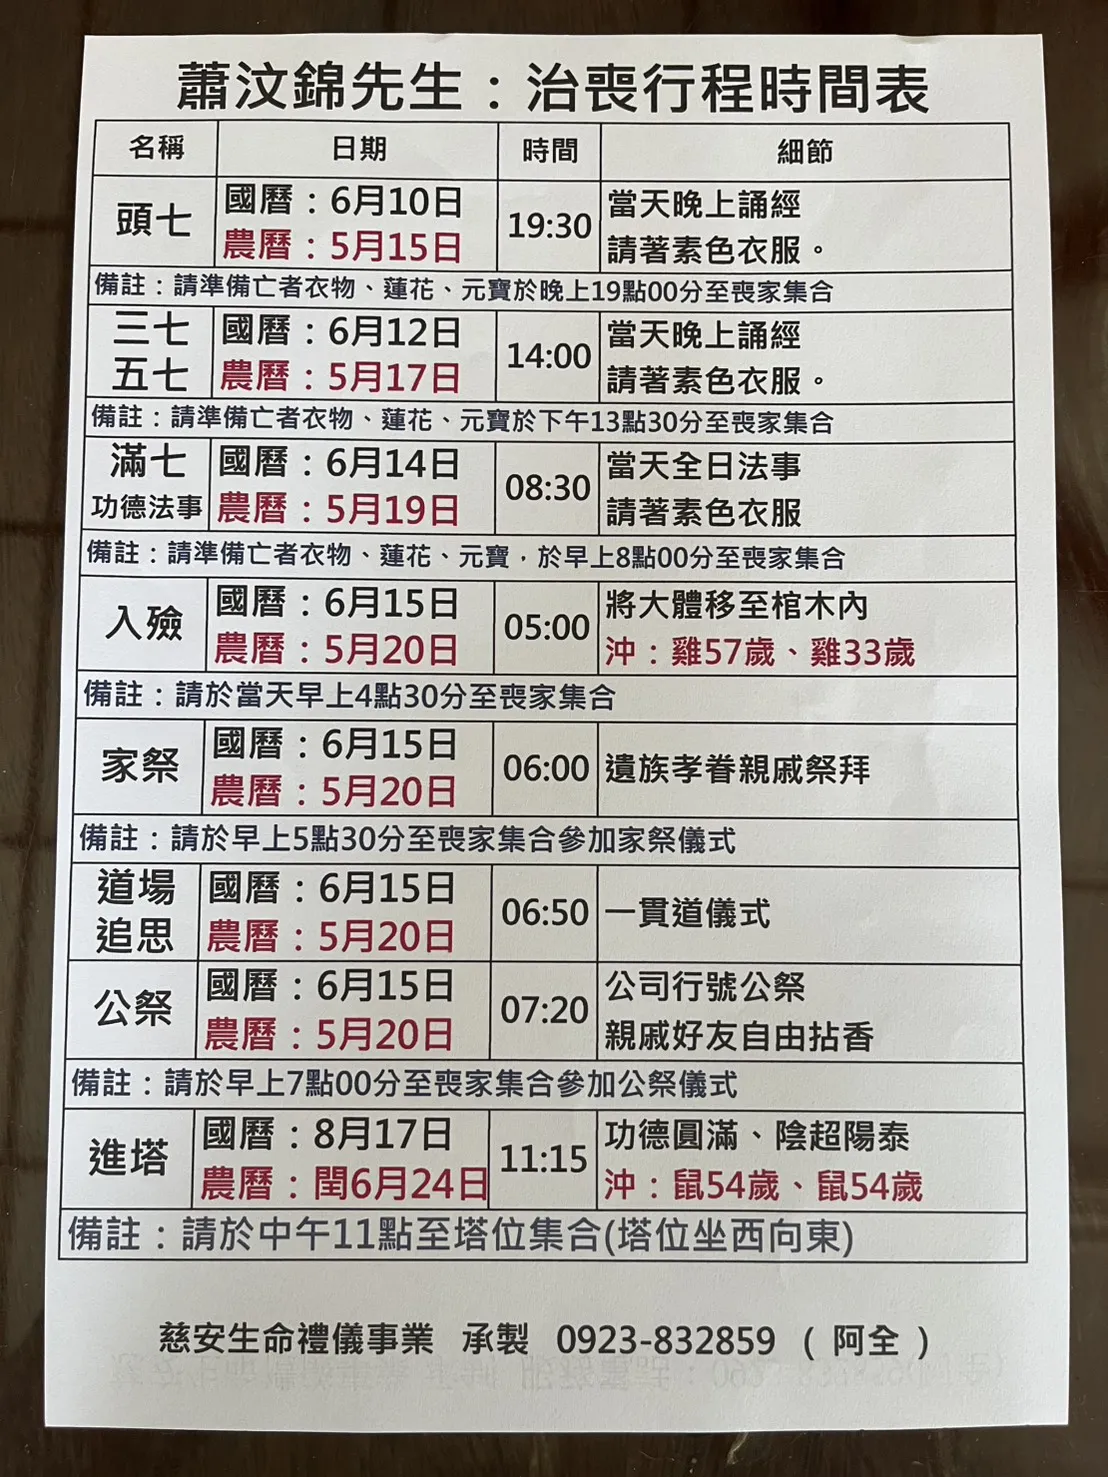 蕭汶錦先生：治喪行程時間表
名稱 日期 時間 細節
頭七 國曆：6月10日 19:30 當天晚上誦經
農曆：5月15日 請著素色衣服。
備註：請準備亡者衣物、蓮花、元寶於晚上19點00分至喪家集合
三七 國曆：6月12日 14:00 當天晚上誦經
五七 農曆：5月17日 請著素色衣服。
備註：請準備亡者衣物、蓮花、元寶於下午13點30分至喪家集合
滿七 國曆：6月14日 08:30 當天全日法事
功德法事 農曆：5月19日 請著素色衣服
備註：請準備亡者衣物、蓮花、元寶，於早上8點00分至喪家集合
入殮 國曆：6月15日 05:00 將大體移至棺木內
農曆：5月20日 沖：雞57歲、雞33歲
備註：請於當天早上4點30分至喪家集合
家祭 國曆：6月15日 06:00 遺族孝眷親戚祭拜
農曆：5月20日
備註：請於早上5點30分至喪家集合參加家祭儀式
道場 國曆：6月15日 06:50 一貫道儀式
追思 農曆：5月20日
公祭 國曆：6月15日 07:20 公司行號公祭
農曆：5月20日 親戚好友自由拈香
備註：請於早上7點00分至喪家集合參加公祭儀式
進塔 國曆：8月17日 11:15 功德圓滿、陰超陽泰
農曆：閏6月24日 沖：鼠54歲、鼠54歲
備註：請於中午11點至塔位集合(塔位坐西向東)
慈安生命禮儀事業 承製 0923-832859 (阿全)